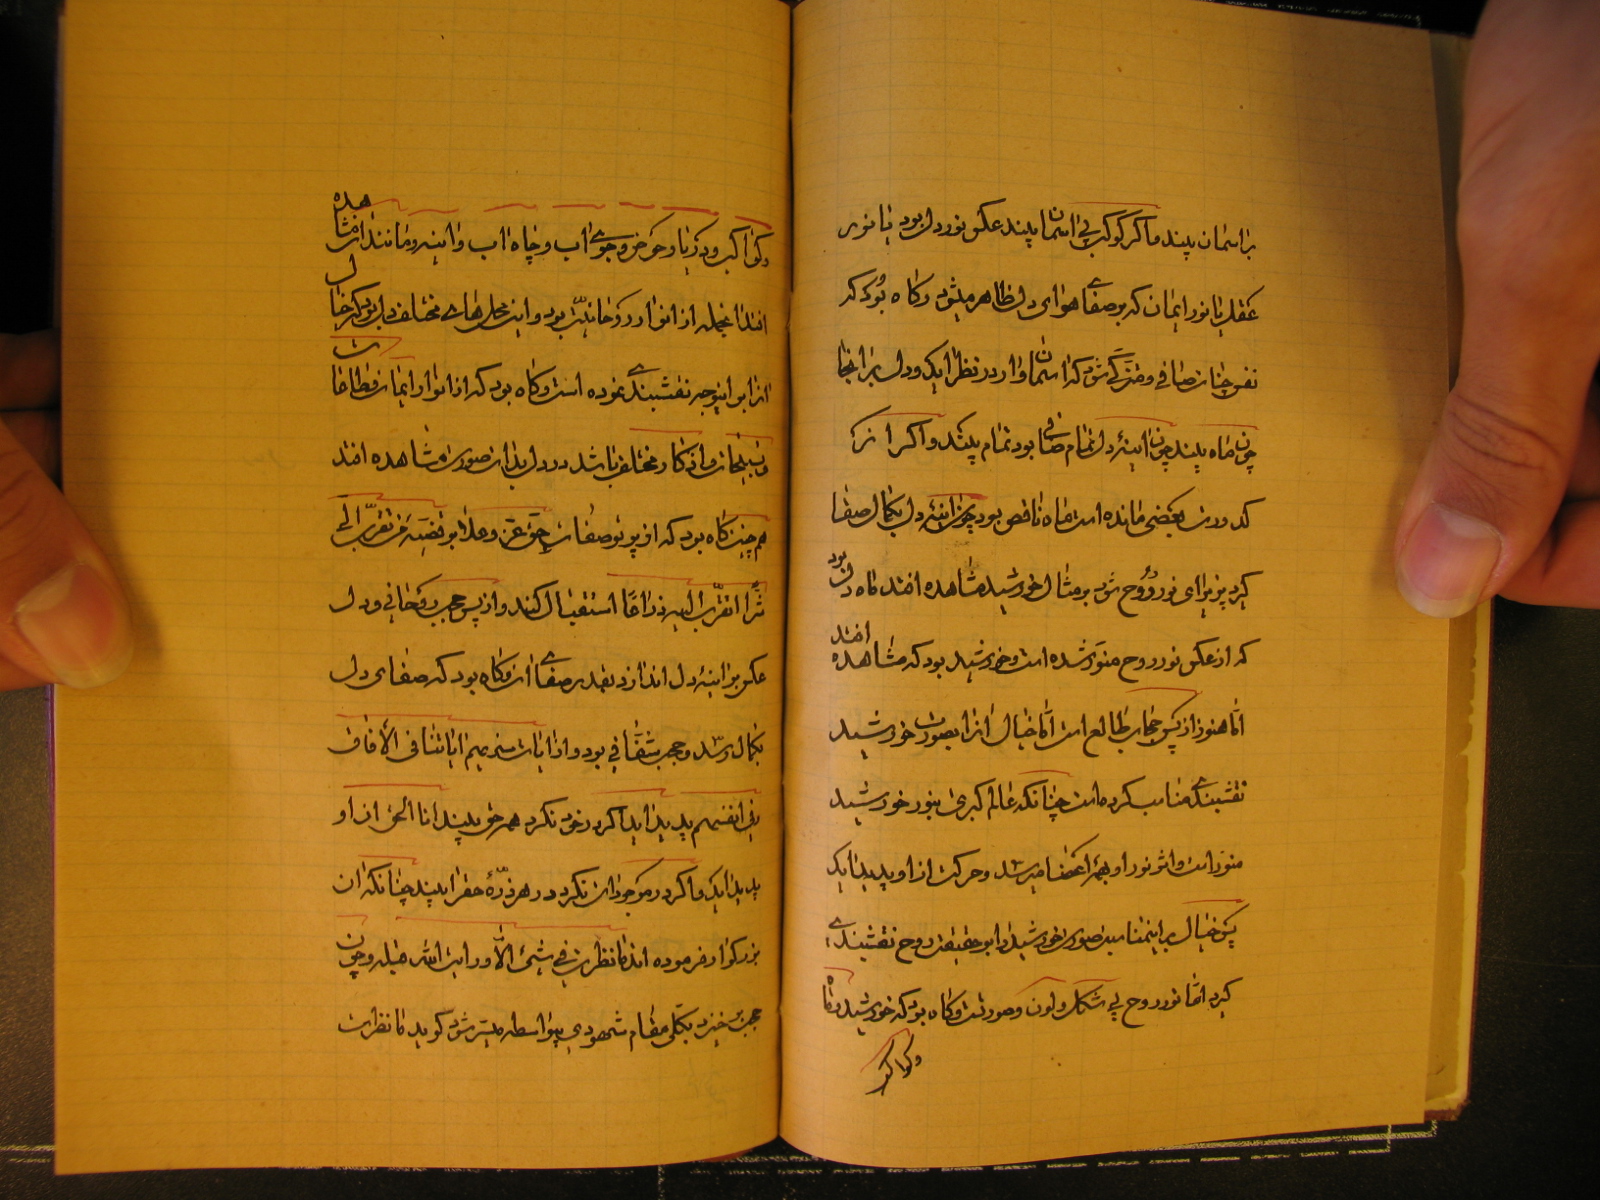 بر اسمان بیند و اگر کوکب بی اسمان بیند عکس نور دل بود یا نور
عقل یا نور ایمان که بر صفای هوای دل ظاهر میشود و کاه بود که
نفس چنان صافی و متزکی شود که اسمان وار در نظر اید و دل بر انجا
چون ماه بیند چون اینهٔ دل تمام صافی بود تمام بیند و اکر از
کدورت بعضی مانده است ماه ناقص بود چون اینهٔ دل بکمال صفا
کیرد پذیرای نور روح شود بر مثال خورشید مشاهده افتد ماه دل بود
که از عکس نور روح منور شده است و خورشید بود که مشاهده افتد
اما هنوز از پس حجاب طالع است اما خیال انرا بصورت خورشید
نقشبندی مناسب کرده است چنانکه عالم کبری بنور خورشید
منور است و اثر نور او بهمه اعضا میرسد و حرکت از او پدید اید
پس خیال بر این مناسبت صورت خورشید را بر حقیقت روح نقشبندی
کرد اما نور روح بی شکل و لون و صورتست و کاه بود که خورشید و ماه
و کواکب
و کواکب در دریا و حوض و جوی اب و چاه اب و اینه و مانند ان مشاهده
افتد انجمله از انوار روحانیت بود و این محل های مختلف دل بود که خیال
انرا بر اینوجه نقشبندی نموده است و کاه بود که از انوار ایمان و طاعات
و تسبیحات و اذکار مختلف باشد در دل بدان صورت مشاهده افتد
هم چنین کاه بود که از پرتو صفات حق عز و علا بر قضیه من تقرب الی
شبرا اتقرب الیه ذراعا استقبال کند و از پس حجب روحانی و دل
عکس بر اینهٔ دل اندازد بقدر صفای ان و کاه بود که صفای دل
بکمال رسد و حجب شفافی بود و از ایات سنریهم ایاتنا فی الافاق
و فی انفسهم پدید اید اکر در خود نکرد همه حق بیند انا الحق از او
پدید اید و اکر در موجودات نکرد در هر ذرهٔ حق را بیند چنانکه ان
بزرکوار فرموده اند ما نظرت فی شیئ الا و رایت الله قبله و چون
حجب بر خیزد بکلی مقام شهودی بیواسطه میسر شود کوید ما نظرت